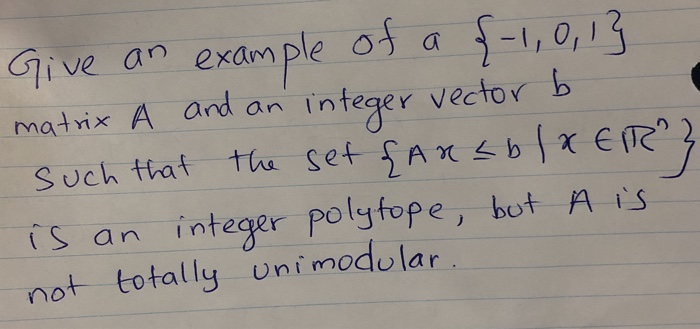 Give an example of a {-1, 0, 1}
matrix A and an integer vector b
such that the set {Ax ≤ b | x ∈ ℝⁿ}
is an integer polytope, but A is
not totally unimodular.